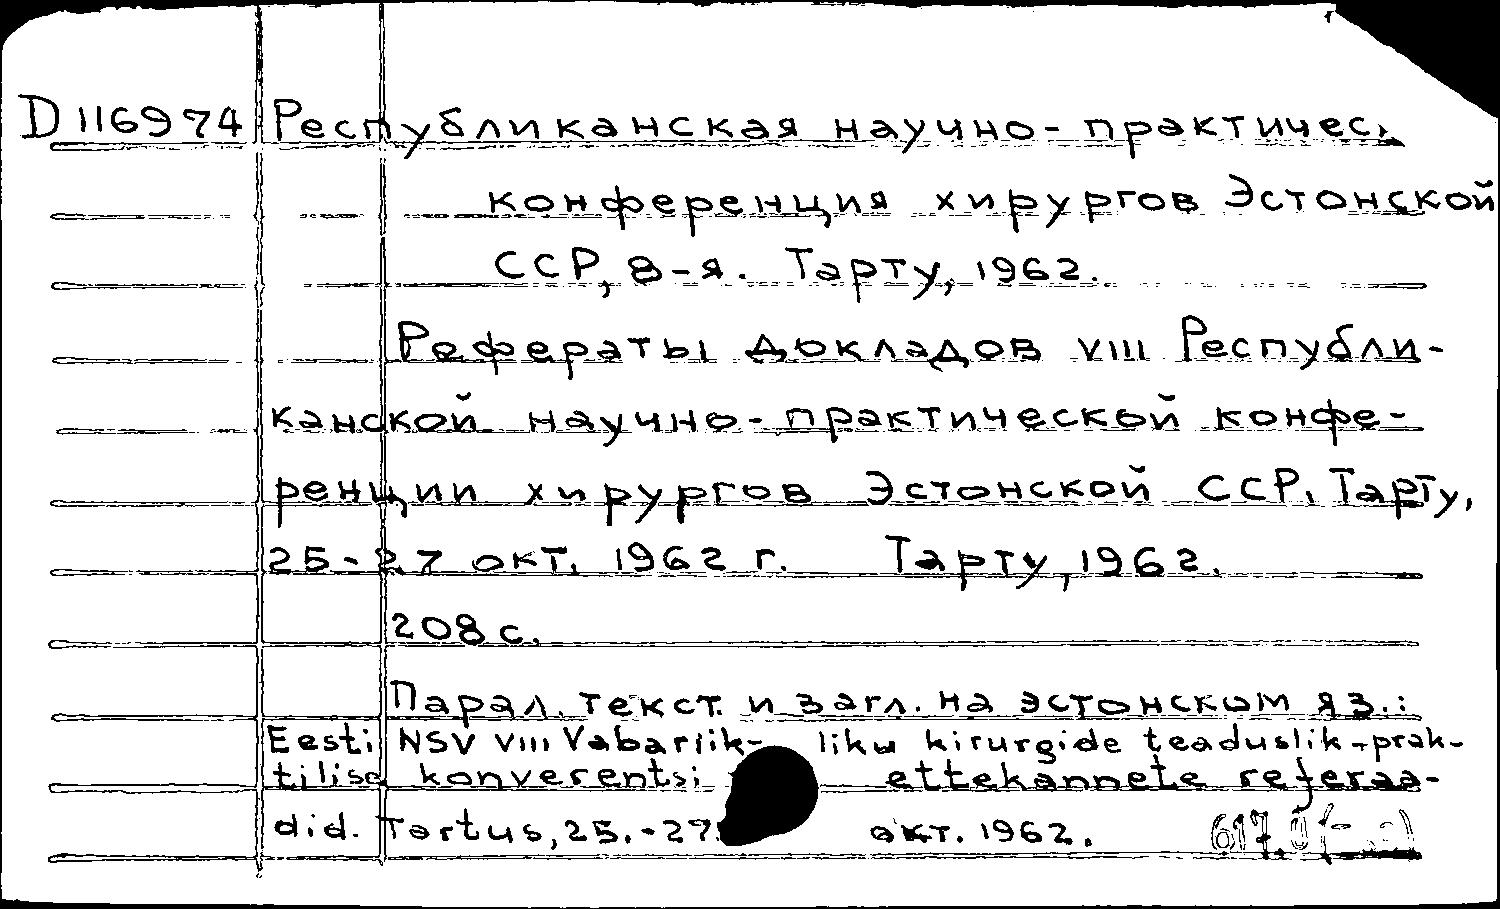 D 116974 Республиканская научно-практичес.
конференция хирургов Эстонской
ССР, 8-я. Тарту, 1962.
Рефераты докладов VIII Республи-
канской научно-практической конфе-
ренции хирургов Эстонской ССР. Тарту,
25-27 окт. 1962 г. Тарту, 1962.
208 с.
Парал. текст. и загл. на эстонском яз.:
Eesti NSV VIII Vabariik- liku kirurgide teaduslik-prak-
tilise konverentsi ettekannete referaa-
did. Tartus, 25.-27. окт. 1962.